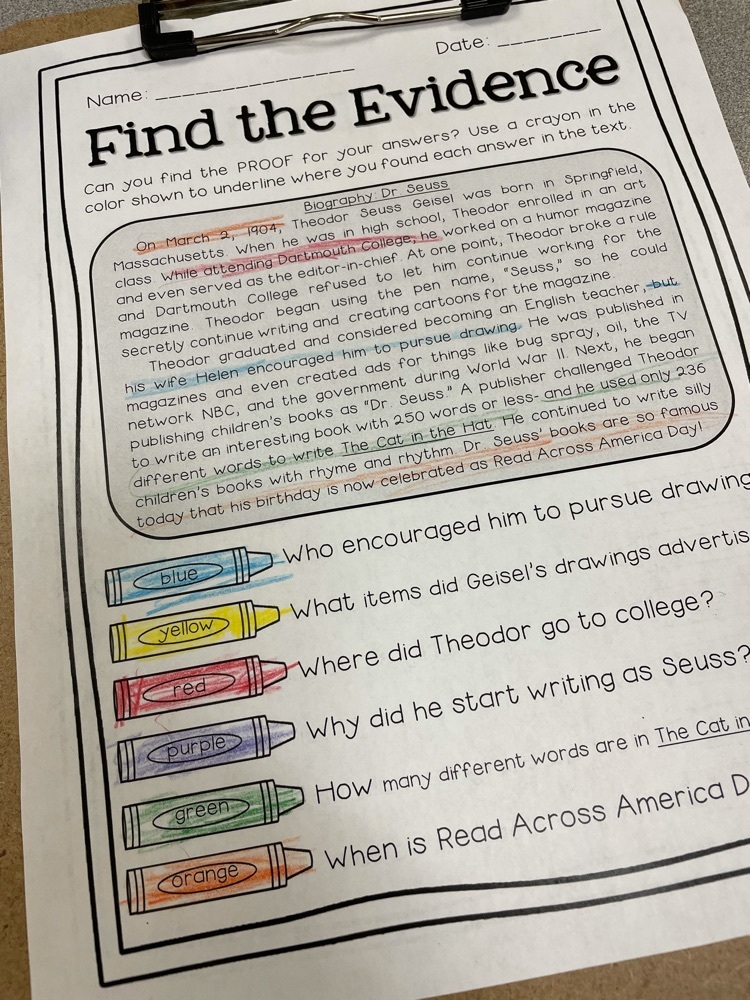 Name: _______________
Date: ________
Find the Evidence
Can you find the PROOF for your answers? Use a crayon in the
color shown to underline where you found each answer in the text.
Biography: Dr. Seuss
On March 2, 1904, Theodor Seuss Geisel was born in Springfield,
Massachusetts. When he was in high school, Theodor enrolled in an art
class. While attending Dartmouth College, he worked on a humor magazine
and even served as the editor-in-chief. At one point, Theodor broke a rule
and Dartmouth College refused to let him continue working for the
magazine. Theodor began using the pen name, "Seuss," so he could
secretly continue writing and creating cartoons for the magazine.
Theodor graduated and considered becoming an English teacher, but
his wife Helen encouraged him to pursue drawing. He was published in
magazines and even created ads for things like bug spray, oil, the TV
network NBC, and the government during World War II. Next, he began
publishing children's books as "Dr. Seuss." A publisher challenged Theodor
to write an interesting book with 250 words or less- and he used only 236
different words to write The Cat in the Hat. He continued to write silly
children's books with rhyme and rhythm. Dr. Seuss' books are so famous
today that his birthday is now celebrated as Read Across America Day!
blue Who encouraged him to pursue drawing
yellow What items did Geisel's drawings advertis
red Where did Theodor go to college?
purple Why did he start writing as Seuss?
green How many different words are in The Cat in
orange When is Read Across America D